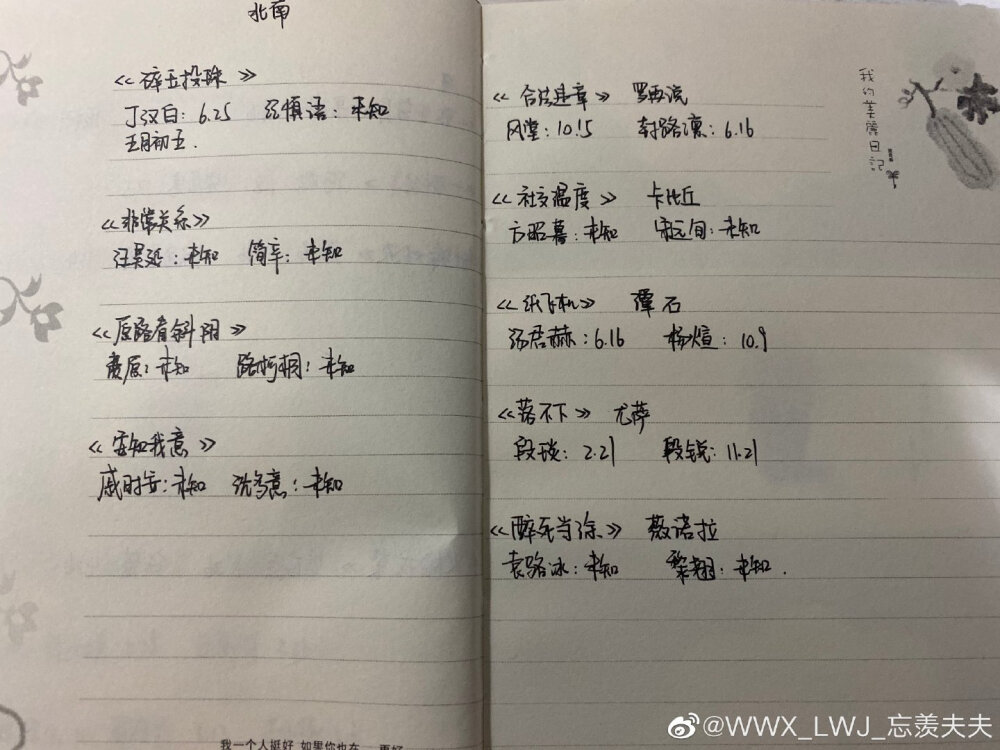 北南
《碎玉投珠》
丁汉白：6.25 纪慎语：未知
五月初五.
《非常关系》
汪昊延：未知 简辛：未知
《原路看斜阳》
费原：未知 路柯桐：未知
《安知我意》
戚时安：未知 沈多意：未知
我一个人挺好 如果你也在 更好
《合法违章》 罗再说
风堂：10.15 封路凛：6.16
《社交温度》 卡比丘
方昭暮：未知 宋远旬：未知
《纸飞机》 潭石
汤君赫：6.16 杨煊：10.9
《落不下》 尤萨
段琰：2.21 段锐：11.21
《醉死当涂》 薇诺拉
袁路冰：未知 黎翘：未知.
我的美丽日记
@WWX_LWJ_忘羡夫夫